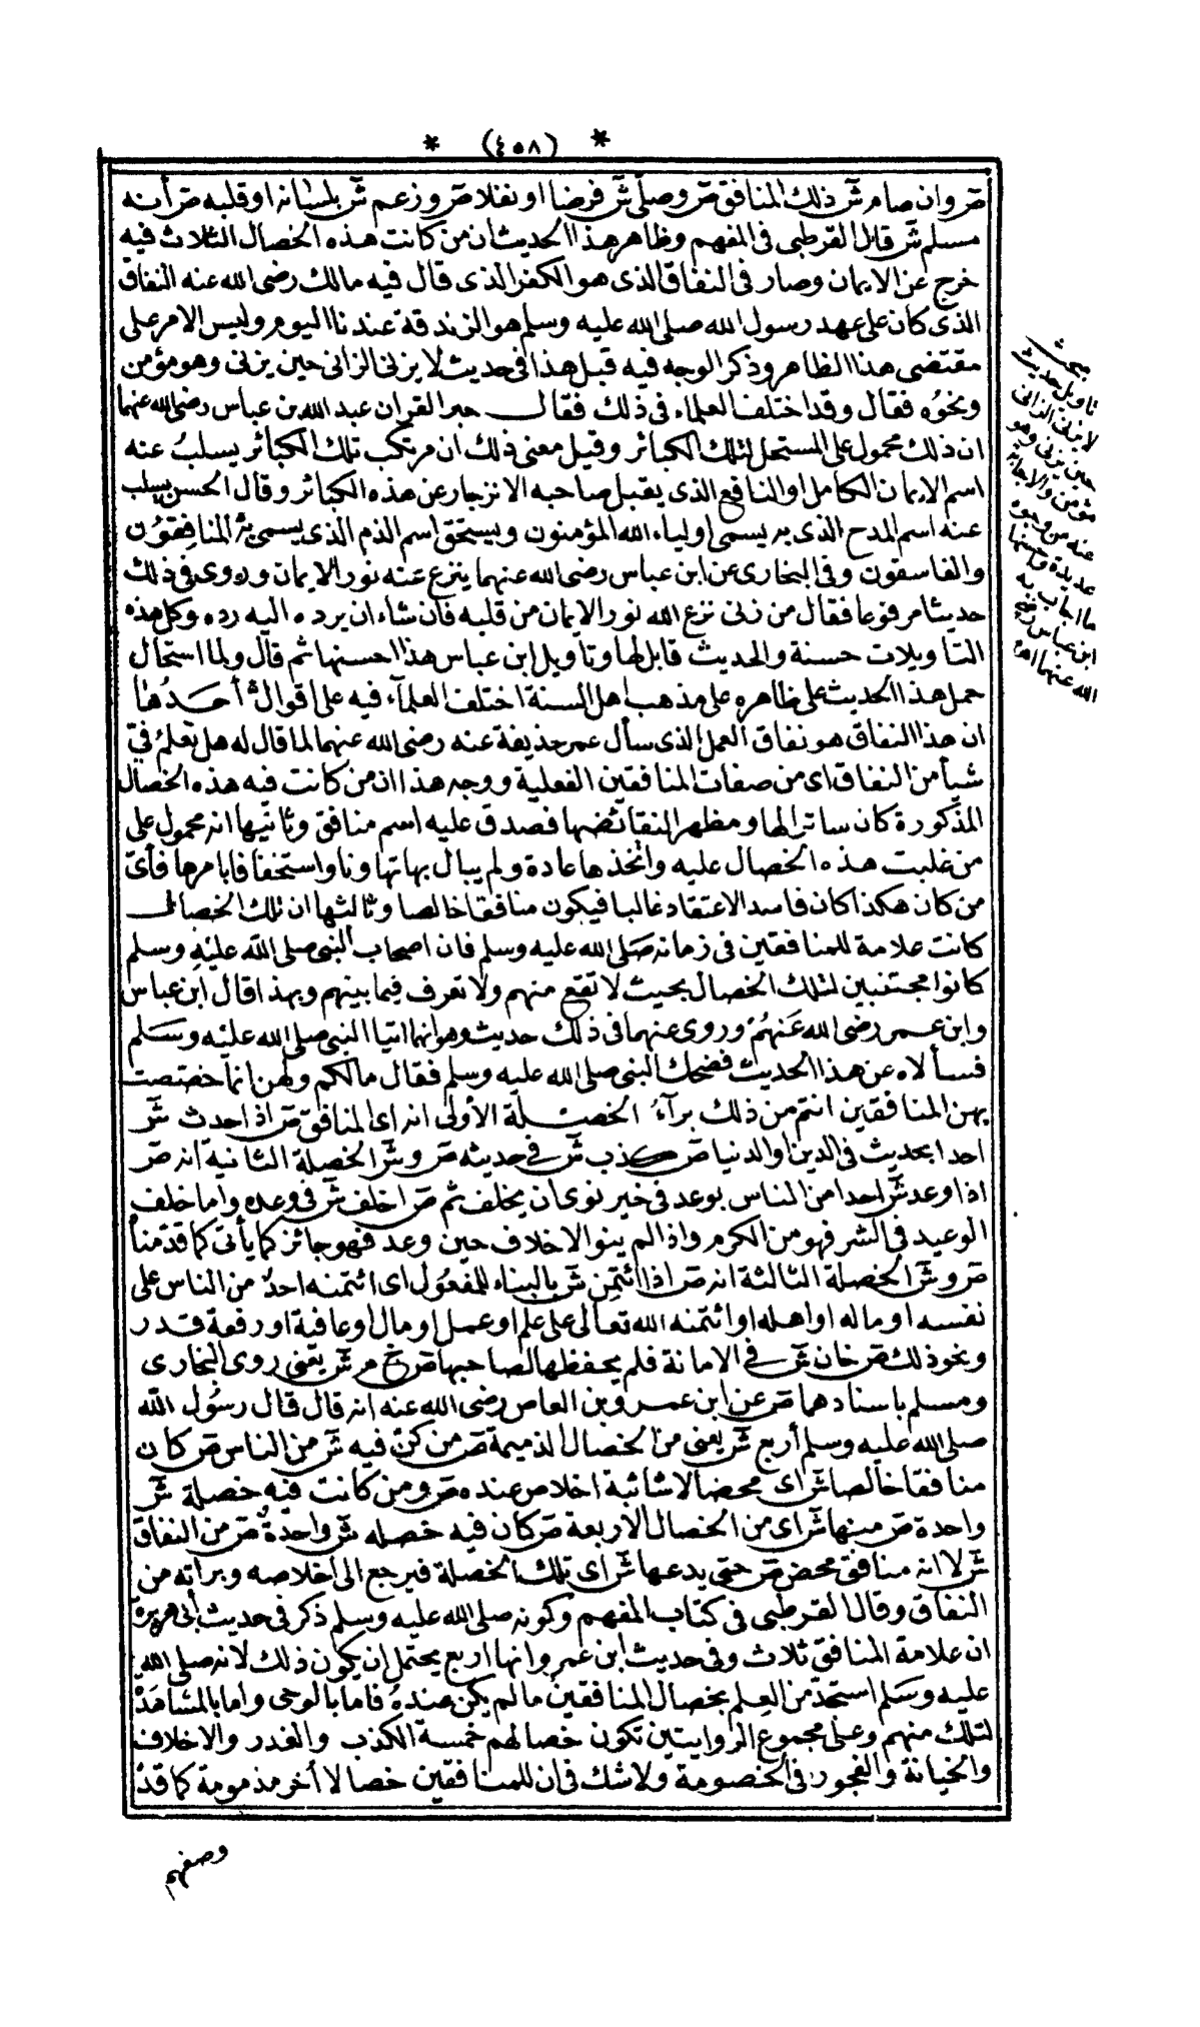 * (٤٥٨) *
صر وان صام شر ذلك المنافق صر وصلى شر فرضا او نفلا صر وزعم شر بلسانه او قلبه صر أنه
مسلم شر قال القرطبى فى المفهم وظاهر هذا الحديث ان من كانت هذه الخصال الثلاث فيه
خرج عن الايمان وصار فى النفاق الذى هو الكفر الذى قال فيه مالك رضى الله عنه النفاق
الذى كان على عهد رسول الله صلى الله عليه وسلم هو الزندقة عندنا اليوم وليس الامر على
مقتضى هذا الظاهر وذكر الوجه فيه قبل هذا فى حديث لا يزنى الزانى حين يزنى وهو مؤمن
ونحوه فقال وقد اختلف العلماء فى ذلك فقال حبر القران عبد الله بن عباس رضى الله عنهما
ان ذلك محمول على المستحل لتلك الكبائر وقيل معنى ذلك ان مرتكب تلك الكبائر يسلب عنه
اسم الايمان الكامل او النافع الذى يقبل صاحبه الانزجار عن هذه الكبائر وقال الحسن يسلب
عنه اسم المدح الذى به يسمى اولياء الله المؤمنون ويستحق اسم الذم الذى يسمى به المنافقون
والفاسقون وفى البخارى عن ابن عباس رضى الله عنهما ينزع عنه نور الايمان وروى فى ذلك
حديثا مرفوعا فقال من زنى نزع الله نور الايمان من قلبه فان شاء ان يرده اليه رده وكل هذه
التأويلات حسنة والحديث قابل لها وتاويل ابن عباس هذا احسنها ثم قال ولما استحال
حمل هذا الحديث على ظاهره على مذهب اهل السنة اختلف العلماء فيه على اقوال أحدها
ان هذا النفاق هو نفاق العمل الذى سأل عمر حذيفة عنه رضى الله عنهما لما قال له هل تعلم فىّ
شيأ من النفاق اى من صفات المنافقين الفعلية ووجه هذا ان من كانت فيه هذه الخصال
المذكورة كان ساترا لها ومظهرا لنقائضها فصدق عليه اسم منافق وثانيها انه محمول على
من غلبت هذه الخصال عليه واتخذها عادة ولم يبال بها تهاونا واستخفافا بامرها فأى
من كان هكذا كان فاسد الاعتقاد غالبا فيكون منافقا خالصا وثالثها ان تلك الخصال
كانت علامة للمنافقين فى زمانه صلى الله عليه وسلم فان اصحاب النبى صلى الله عليه وسلم
كانوا مجتنبين لتلك الخصال بحيث لا تقع منهم ولا تعرف فيما بينهم وبهذا قال ابن عباس
وابن عمر رضى الله عنهم وروى عنهما فى ذلك حديث وهو انهما اتيا النبى صلى الله عليه وسلم
فسألاه عن هذا الحديث فضحك النبى صلى الله عليه وسلم فقال مالكم ولهن انما خصصت
بهن المنافقين انتم من ذلك برآء الخصلة الأولى انه اى المنافق صر اذا حدث شر
احدا بحديث فى الدين او الدنيا صر كذب شر فى حديثه صر و شر الخصلة الثانية انه صر
اذا وعد شر احدا من الناس بوعد فى خير نوى ان يخلف ثم صر اخلف شر فى وعده واما خلف
الوعيد فى الشر فهو من الكرم واذا لم ينو الاخلاف حين وعد فهو جائز كما يأتى كما قدمنا
صر و شر الخصلة الثالثة انه صر اذا ائتمن شر بالبناء للمفعول اى ائتمنه احد من الناس على
نفسه او ماله او اهله او ائتمنه الله تعالى على علم او عمل او مال او عافية او رفعة قدر
ونحو ذلك صر خان شر فى الامانة فلم يحفظها لصاحبها صر خ م شر يعنى روى البخارى
ومسلم باسنادهما صر عن ابن عمرو بن العاص رضى الله عنه انه قال قال رسول الله
صلى الله عليه وسلم أربع شر يعنى من الخصال الذميمة صر من كن فيه شر من الناس صر كان
منافقا خالصا شر اى محضا لا شائبة اخلاص عنده صر ومن كانت فيه خصلة شر
واحدة صر منها شر اى من الخصال الاربعة صر كان فيه خصله شر واحدة صر من النفاق
شر لا انه منافق محض صر حتى يدعها شر اى تلك الخصلة فيرجع الى اخلاصه وبراته من
النفاق وقال القرطبى فى كتاب المفهم وكونه صلى الله عليه وسلم ذكر فى حديث أبى هريرة
ان علامة المنافق ثلاث وفى حديث ابن عمر وانها اربع يحتمل ان يكون ذلك لانه صلى الله
عليه وسلم استجد من العلم بخصال المنافقين ما لم يكن عنده فاما بالوحى واما بالمشاهدة
لتلك منهم وعلى مجموع الروايتين تكون خصالهم خمسة الكذب والغدر والاخلاف
والخيانة والفجور فى الخصومة ولا شك فى ان للمنافقين خصالا أخر مذمومة كما قد
وصفهم
مبحث
تاويل حديث
لا يزنى الزانى
حين يزنى وهو
مؤمن والاجابة
عنه من وجوه
عديدة واحسنها
ما اجاب به
ابن عباس رضى
الله عنهما اهـ